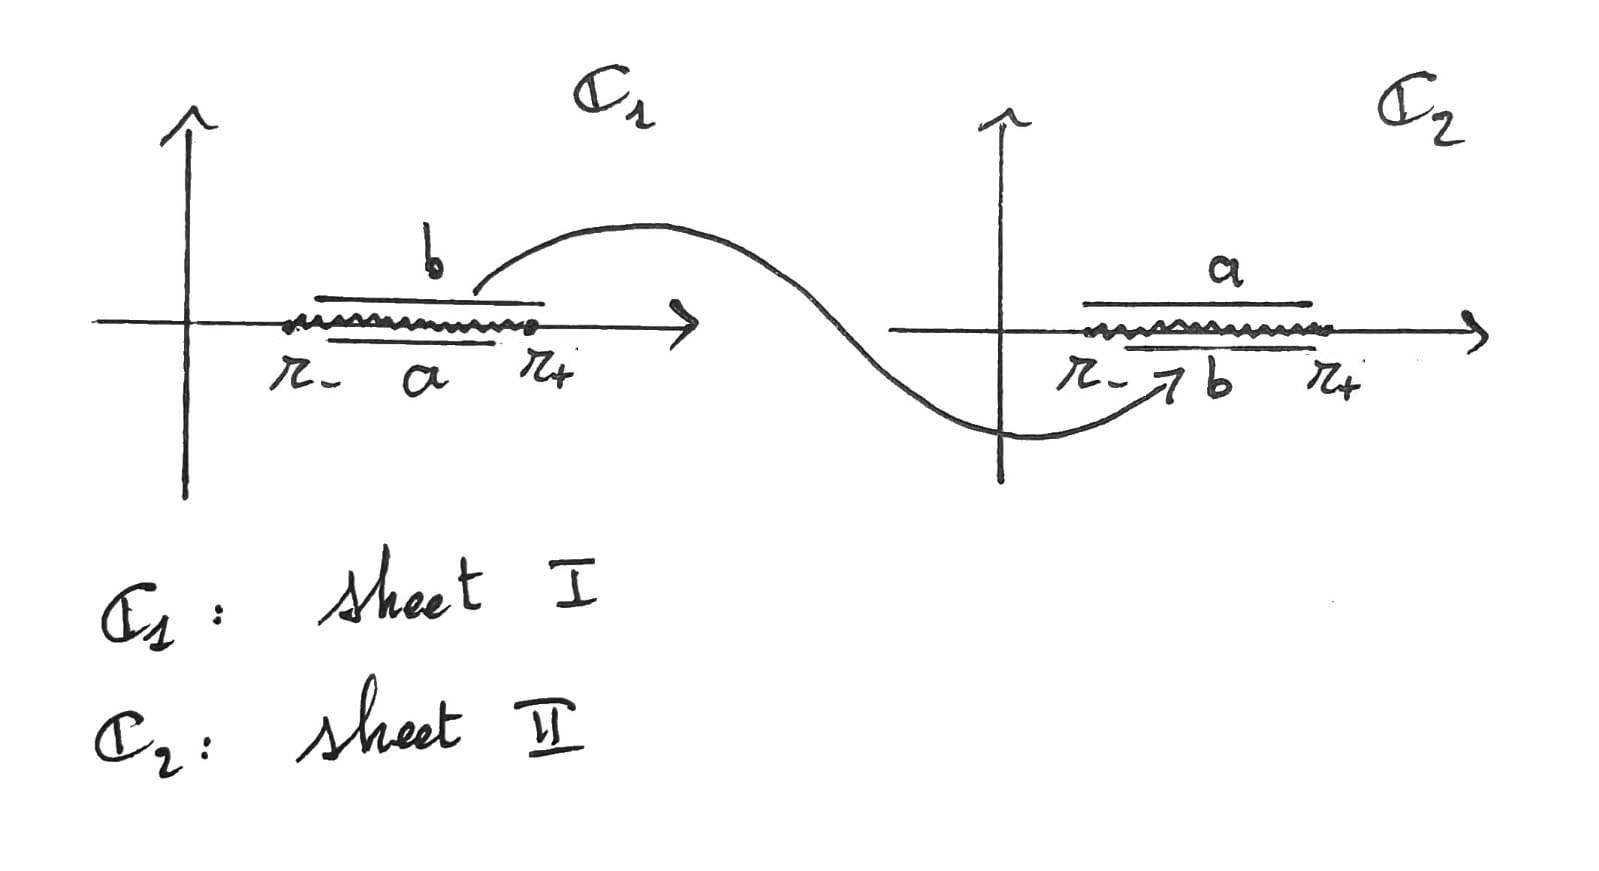 ℂ₁ ℂ₂
b a
r₋ a r₊ r₋ b r₊
ℂ₁: sheet I
ℂ₂: sheet II